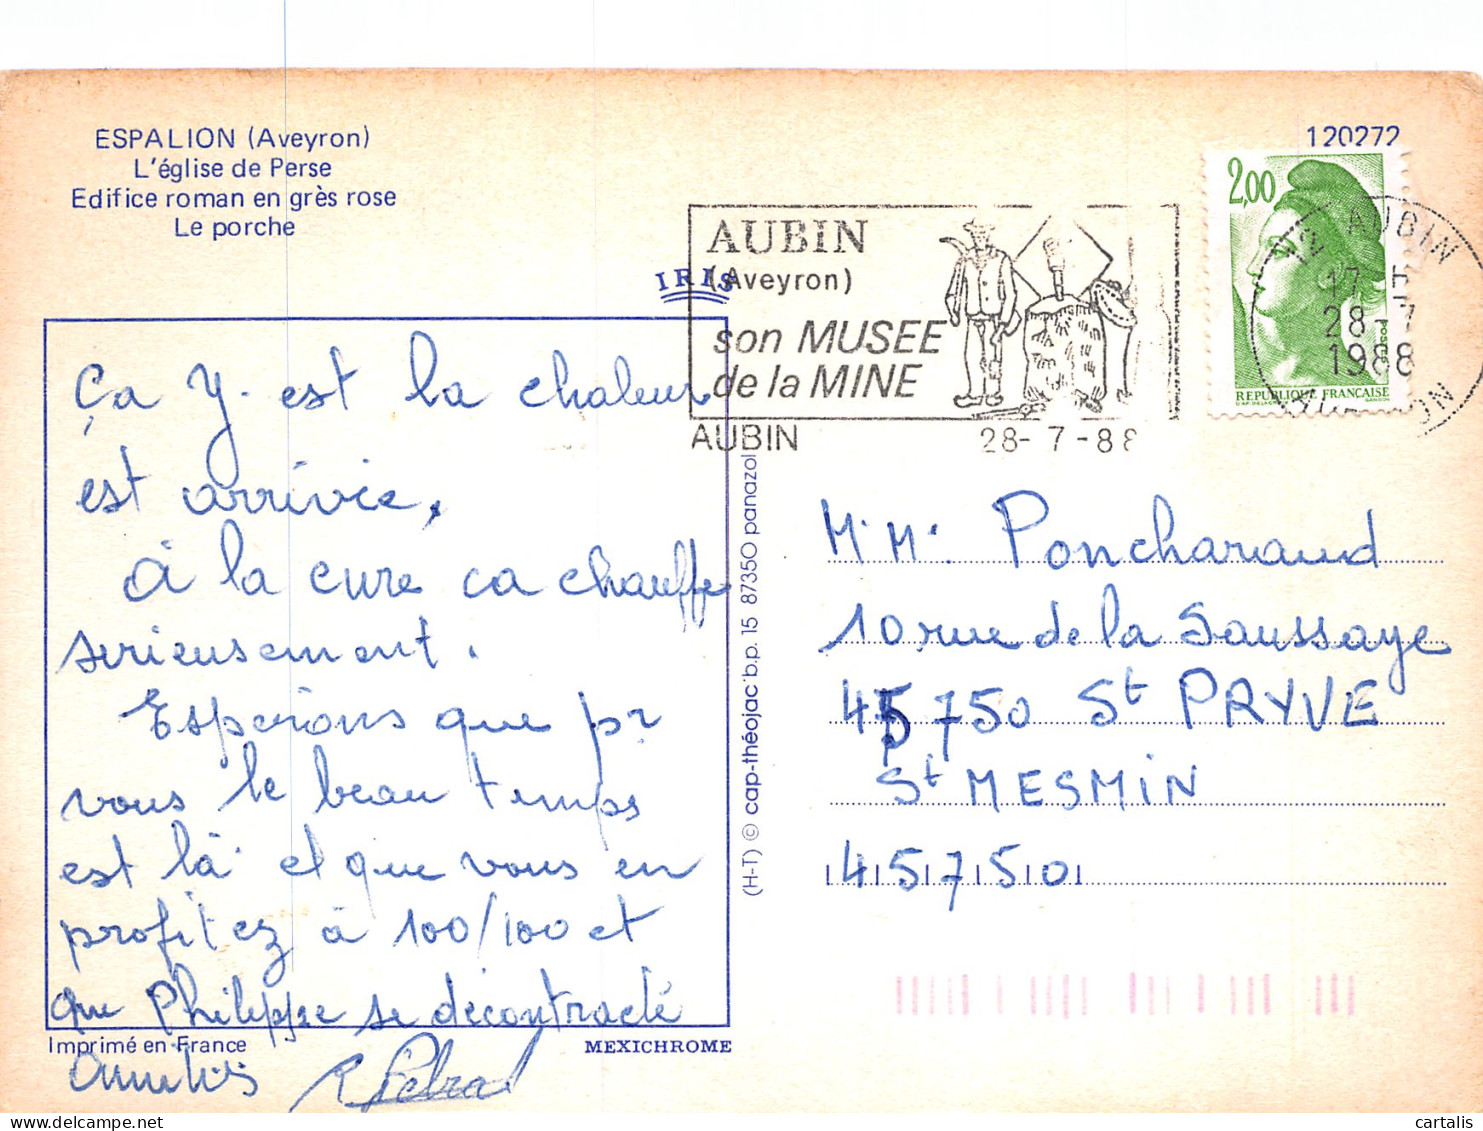 ESPALION (Aveyron)
L'église de Perse
Edifice roman en grès rose
Le porche
120272
IRIS
AUBIN
(Aveyron)
son MUSEE
de la MINE
AUBIN 28-7-88
2,00
POSTES
REPUBLIQUE FRANÇAISE
AUBIN
17 H
28 7
1988
AVEYRON
Ça Y. est la chaleur
est arrivie,
à la cure ca chauffe
serieusement.
Esperions que pr
vous le beau temps
est là et que vous en
profitez à 100/100 et
que Philippe se décontracté
Amitiés
M. M. Poncharaud
10 rue de la Saussaye
45750 St PRYVE
St MESMIN
45750
(H-T) © cap-théojac b.p. 15 87350 panazol
Imprimé en France MEXICHROME
cartalis